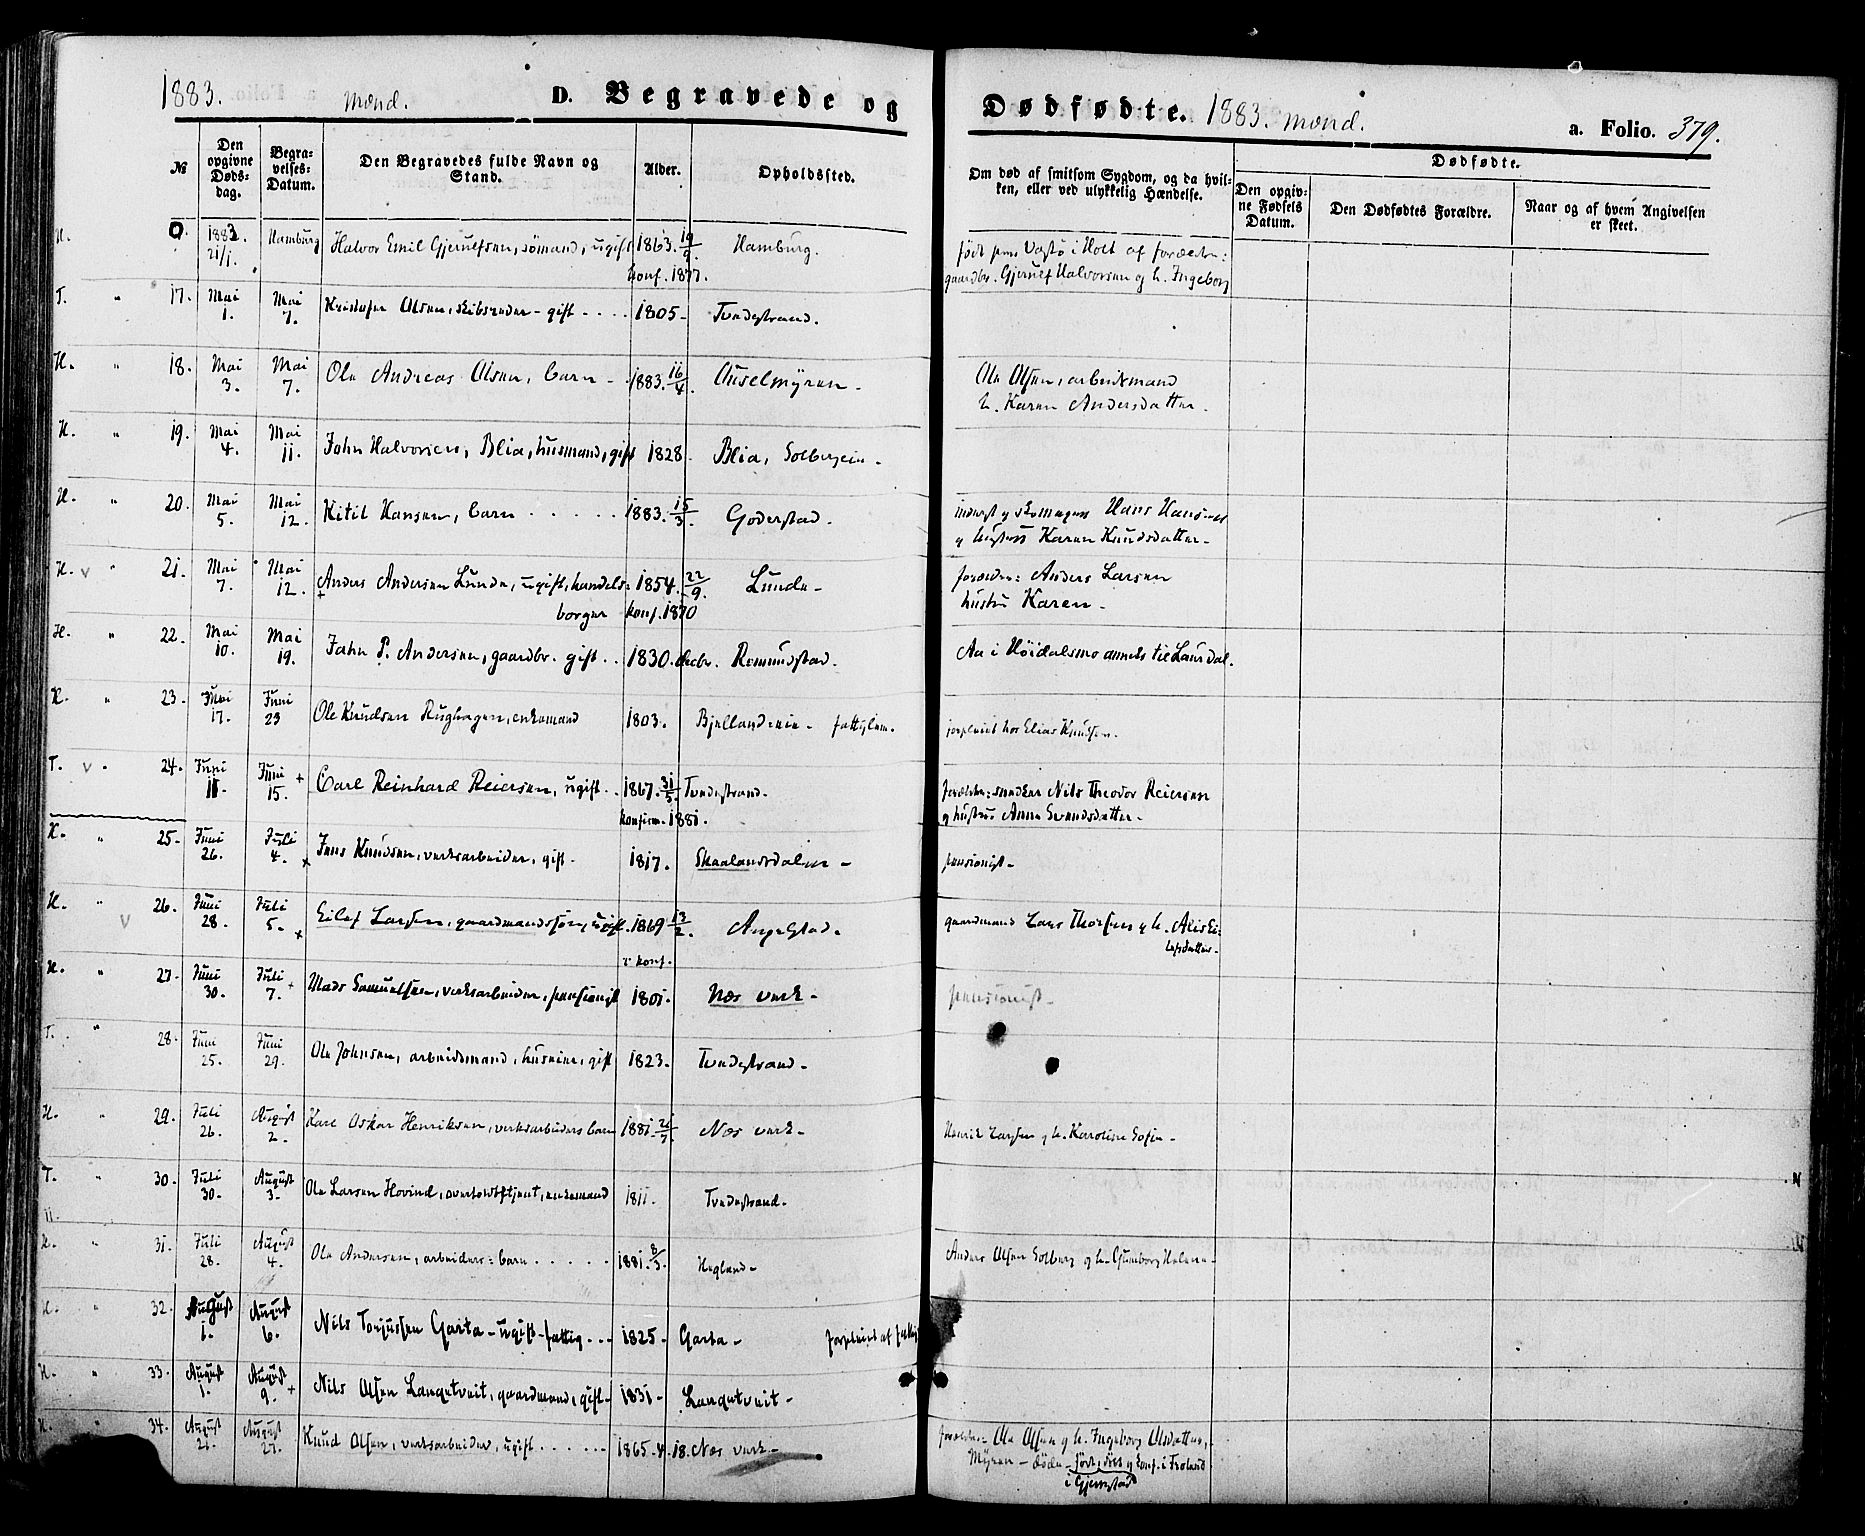 1883.
mænd.
D. Begravede og
Dødfødte.
1883. mænd.
a. Folio. 379.
№
Den opgivne Døds-dag.
Begra-velses-Datum.
Den Begravedes fulde Navn og Stand.
Alder.
Opholdssted.
Om død af smitsom Sygdom, og da hvil-ken, eller ved ulykkelig Hændelse.
Dødfødte.
Den opgiv-ne Fødsels Datum.
Den Dødfødtes Forældre.
Naar og af hvem Angivelsen er skeet.
H. 0. 1883. 21/1. Hamburg Halvor Emil Gjerulfsen, sømand, ugift 1863. 19/9. Hamburg. født paa i Holt af forældre:
konf. 1877. gaardbr. Gjerulf Halvorsen og h. Ingeborg
T. " 17. Mai 1. Mai 7. Kristofer Olsen, skibsreder - gift 1805 - Tvedestrand.
H. " 18. Mai 3. Mai 7. Ole Andreas Olsen, barn - 1883. 16/4. Auselmyren - Ole Olsen, arbeidsmand
h. Karen Andersdatter.
H. " 19. Mai 4. Mai 11. John Halvorsen, Blia, husmand, gift 1828. Blia, Solbergeie -
H. " 20. Mai 5. Mai 12. Kitil Hansen, barn 1883. 15/3. Goderstad. inderst og skomager Hans Hansen
og hustru Karen Knudsdatter -
H. v " 21. Mai 7. Mai 12. Anders Andersen Lunde, ugift, handels= 1854. 22/9. Lunde - forældre: Anders Larsen
borger konf. 1870 hustru Karen -
H. " 22. Mai 10. Mai 19. John P. Andersen, gaardbr. gift 1830. decbr. Romundstad. Aa i Høidalsmo annex til Laurdal.
H. " 23. Juni 17. Juni 23 Ole Knudsen Rughagen, enkemand 1803. Bjellandseie - fattiglem. forpleiet hos Elias Knudsen.
T. v " 24. Juni 11. Juni 15. + Carl Reinhard Reiersen, ugift 1867. 31/5. Tvedestrand. forældre: snedker Nils Theodor Reiersen
konfirm. 1881. og hustru Anne Svendsdatter -
H. " 25. Juni 26. Juli 4. x Jens Knudsen, verksarbeider, gift - 1817. Skaalandsdalen - pensionist -
H. v " 26. Juni 28. Juli 5. x Eilef Larsen, gaardmandssøn, ugift. 1869 13/2. Angelstad. gaardmand Lars Thorsen og h. Alis Ei=
konf. lefsdatter.
H. " 27. Juni 30. Juli 7. + Mads Samuelsen, verksarbeider, pensionist 1801. Næs verk - pensionist -
T. " 28. Juni 25. Juni 29. Ole Johnsen, arbeidsmand, huseier, gift 1823. Tvedestrand -
H. " 29. Juli 26. August 2. Karl Oskar Henriksen, verksarbeiders barn 1881. Næs verk - Henrik Larsen og h. Karoline Sofie -
T. " 30. Juli 30. August 3. Ole Larsen Hovind, enkemand 1811. Tvedestrand -
H. " 31. Juli 28. August 4. Ole Andersen, arbeiders: barn 1881. 8/3. Hegland - Anders Olsen Solberg og h. Gunborg Helene -
H. " 32. August 1. August 6. Nils Torjussen Garta - ugift - fattig 1825 - Garta - forpleiet af
H. " 33. August 1. August 9. + Nils Olsen Langetveit, gaardmand, gift - 1831 - Langetveit -
H. " 34. August 21. August 27. Knud Olsen, verksarbeider, ugift 1865. 4. 18. Næs verk - forældre: Ole Olsen og h. Ingeborg Olsdatter,
Myren - døde - født, døbt og konf. i Froland
i Gjerrestad